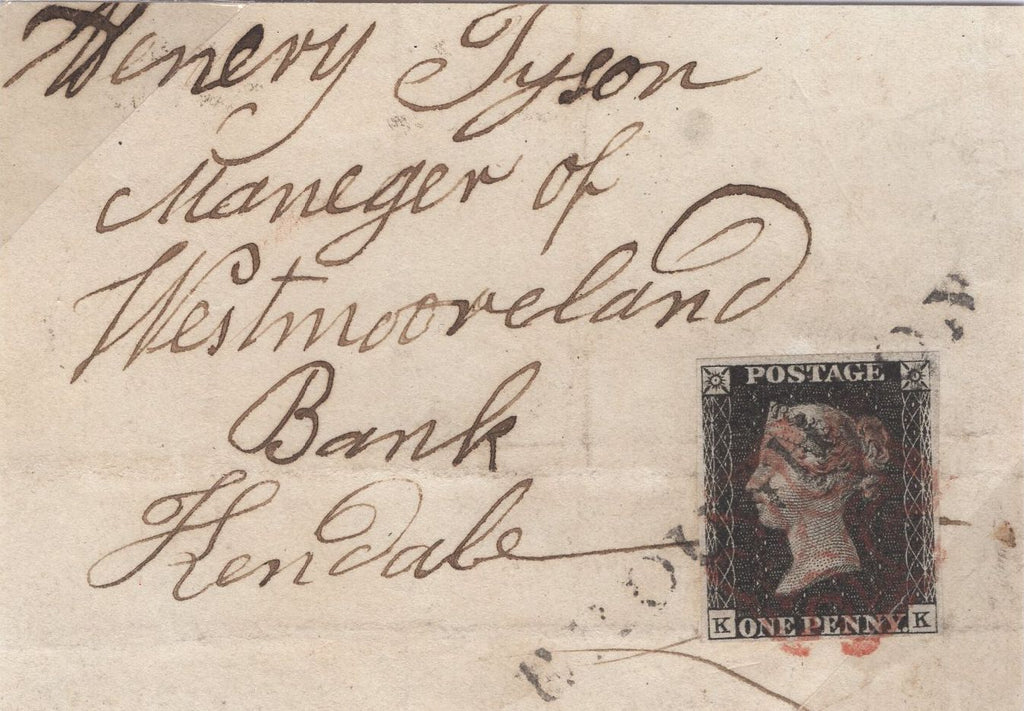 Henery Tyson
Maneger of
Westmooreland
Bank
Kendale
POSTAGE
K ONE PENNY. K